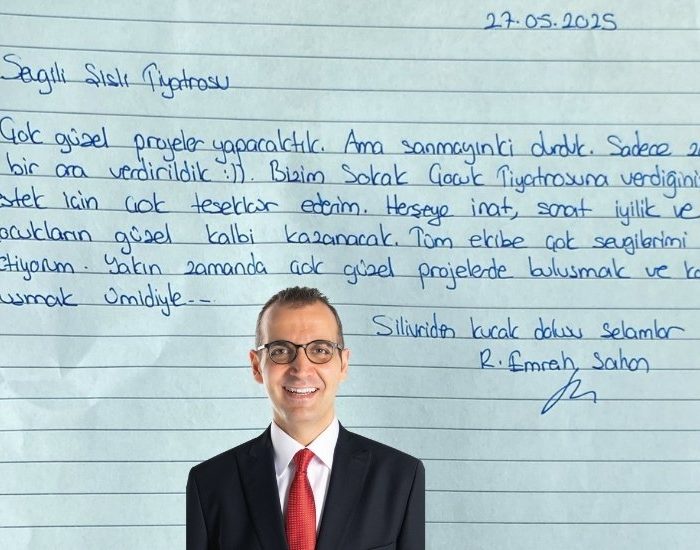 27.05.2025
Sevgili Şişli Tiyatrosu
Çok güzel projeler yapacaktık. Ama sanmayınki durduk. Sadece
bir ara verdirildik :)). Bizim Sokak Çocuk Tiyatrosuna verdiğini
stek için çok teşekkür ederim. Herşeye inat, sanat iyilik ve
ocukların güzel kalbi kazanacak. Tüm ekibe çok sevgilerimi
tiyorum. Yakın zamanda çok güzel projelerde buluşmak ve
uşmak ümidiyle--
Silivriden kucak dolusu selamlar
R. Emrah Şahan